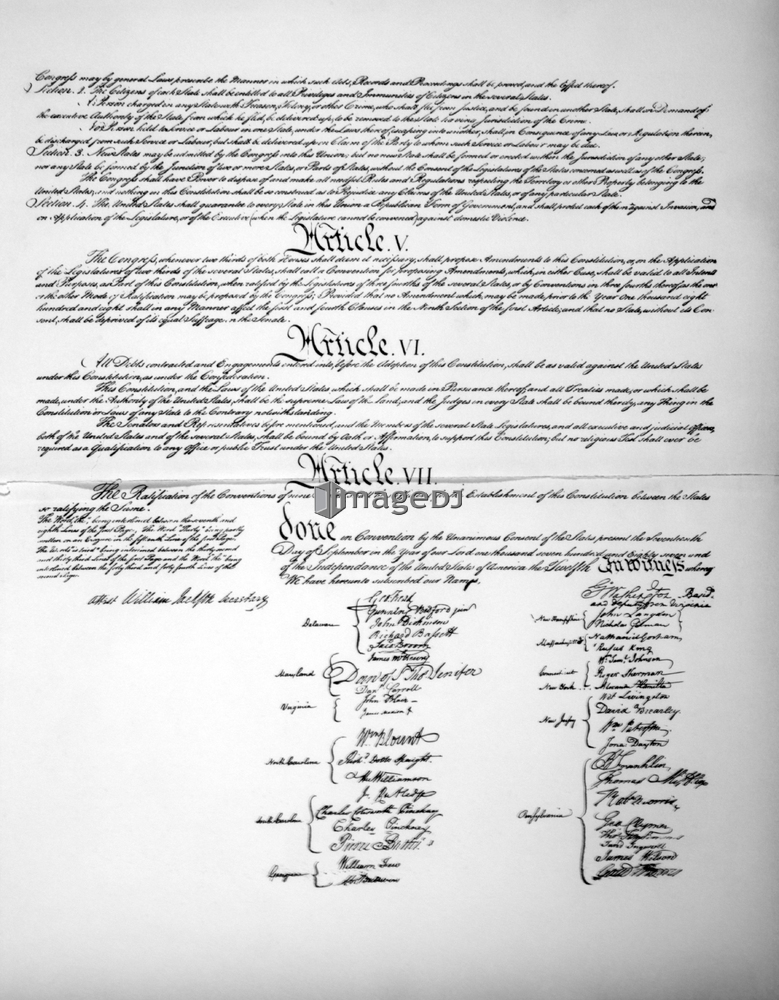 Congress may by general Laws prescribe the Manner in which such Acts, Records and Proceedings shall be proved, and the Effect thereof.
Section. 2. The Citizens of each State shall be entitled to all Privileges and Immunities of Citizens in the several States.
A Person charged in any State with Treason, Felony, or other Crime, who shall flee from Justice, and be found in another State, shall on Demand of
the executive Authority of the State from which he fled, be delivered up, to be removed to the State having Jurisdiction of the Crime.
No Person held to Service or Labour in one State, under the Laws thereof, escaping into another, shall, in Consequence of any Law or Regulation therein,
be discharged from such Service or Labour, but shall be delivered up on Claim of the Party to whom such Service or Labour may be due.
Section. 3. New States may be admitted by the Congress into this Union; but no new State shall be formed or erected within the Jurisdiction of any other State;
nor any State be formed by the Junction of two or more States, or Parts of States, without the Consent of the Legislatures of the States concerned as well as of the Congress.
The Congress shall have Power to dispose of and make all needful Rules and Regulations respecting the Territory or other Property belonging to the
United States; and nothing in this Constitution shall be so construed as to Prejudice any Claims of the United States, or of any particular State.
Section. 4. The United States shall guarantee to every State in this Union a Republican Form of Government, and shall protect each of them against Invasion; and
on Application of the Legislature, or of the Executive (when the Legislature cannot be convened) against domestic Violence.
Article. V.
The Congress, whenever two thirds of both Houses shall deem it necessary, shall propose Amendments to this Constitution, or, on the Application
of the Legislatures of two thirds of the several States, shall call a Convention for proposing Amendments, which, in either Case, shall be valid to all Intents
and Purposes, as Part of this Constitution, when ratified by the Legislatures of three fourths of the several States, or by Conventions in three fourths thereof, as the one
or the other Mode of Ratification may be proposed by the Congress; Provided that no Amendment which may be made prior to the Year One thousand eight
hundred and eight shall in any Manner affect the first and fourth Clauses in the Ninth Section of the first Article; and that no State, without its Con-
sent, shall be deprived of its equal Suffrage in the Senate.
Article. VI.
All Debts contracted and Engagements entered into, before the Adoption of this Constitution, shall be as valid against the United States
under this Constitution, as under the Confederation.
This Constitution, and the Laws of the United States which shall be made in Pursuance thereof; and all Treaties made, or which shall be
made, under the Authority of the United States, shall be the supreme Law of the Land; and the Judges in every State shall be bound thereby, any Thing in the
Constitution or Laws of any State to the Contrary notwithstanding.
The Senators and Representatives before mentioned, and the Members of the several State Legislatures, and all executive and judicial Officers,
both of the United States and of the several States, shall be bound by Oath or Affirmation, to support this Constitution; but no religious Test shall ever be
required as a Qualification to any Office or public Trust under the United States.
Article. VII.
The Ratification of the Conventions of nine Establishment of this Constitution between the States
so ratifying the Same.
imageDJ
The Word, "the," being interlined between the seventh and
eighth Lines of the first Page, The Word "Thirty" being partly
written on an Erazure in the fifteenth Line of the first Page,
The Words "is tried" being interlined between the thirty second
and thirty third Lines of the first Page and the Word "the" being
interlined between the forty third and forty fourth Lines of the
second Page.
Attest William Jackson Secretary
Done in Convention by the Unanimous Consent of the States present the Seventeenth
Day of September in the Year of our Lord one thousand seven hundred and Eighty seven and
of the Independence of the United States of America the Twelfth In Witness whereof
We have hereunto subscribed our Names,
Delaware
Geo: Read
Gunning Bedford jun
John Dickinson
Richard Bassett
Jaco: Broom
Maryland
James McHenry
Dan of St Thos Jenifer
Danl Carroll
Virginia
John Blair
James Madison Jr
North Carolina
Wm Blount
Richd Dobbs Spaight.
Hu Williamson
South Carolina
J. Rutledge
Charles Cotesworth Pinckney
Charles Pinckney
Pierce Butler
Georgia
William Few
Abr Baldwin
Go: Washington Presidt
and deputy from Virginia
New Hampshire
John Langdon
Nicholas Gilman
Massachusetts
Nathaniel Gorham
Rufus King
Connecticut
Wm Saml Johnson
Roger Sherman
New York
Alexander Hamilton
New Jersey
Wil: Livingston
David Brearley.
Wm Paterson.
Jona: Dayton
Pensylvania
B Franklin
Thomas Mifflin
Robt Morris
Geo. Clymer
Thos FitzSimons
Jared Ingersoll
James Wilson
Gouv Morris